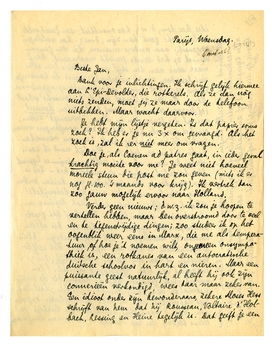 Parijs, Woensdag.
Beste Jan,
Dank voor je inlichtingen. Ik schrijf gelijk hiermee
aan d'Epi-Devolder, die rotkerels. Als ze dan nòg
niets zenden, moet jij ze maar door de telefoon
uitbekken. Maar wacht daarvoor.
Ik heb mijn lijstje vergeten. Is dat papier soms
zoek? Ik heb er je nu 3x om gevraagd. Als het
zoek is, zal ik er niet meer om vragen.
Doe je, als Coenen ad patres gaat, in ieder geval
krachtig moeite voor me? Je weet niet hoeveel
moreele steun die post me zou geven (niets is er
nog ƒ100.- 's maands voor krijg). Ik
zou gauw mogelijk ervoor naar Holland.
Verder geen nieuws; d.w.z. ik zou je hoopen te
vertellen hebben, maar ben overstroomd door te veel
en te tegenwoordige dingen; zoo steken ik op het
oogenblik weer eens in Marx, die me als tempera-
ment, of hoe je 't noemen wilt, ongeveer onsympa-
thiek is, een rotkaras van een autocratische
duitsche schoolvos in hart en nieren. Maar zijn
puissante geest natuurlijk, al heeft hij ook zijn
connerieën verkondigd, wees daar maar zeker van.
Een idioot onder zijn bewonderaars, zekere Moses Hess
schrijft van hem dat hij Rousseau, Voltaire, d'Hol-
bach, Lessing en Heine tegelijk is. Dat geeft je een